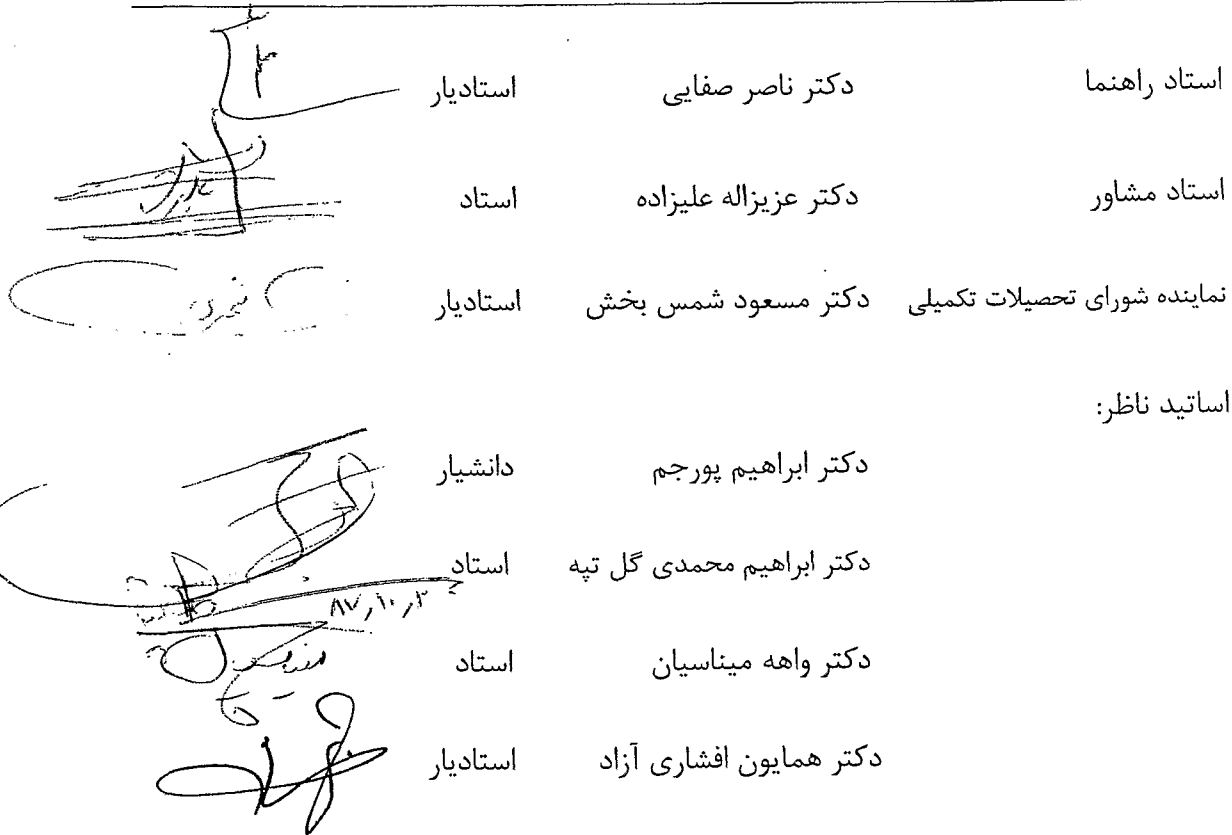 استاد راهنما دکتر ناصر صفایی استادیار
استاد مشاور دکتر عزیزاله علیزاده استاد
نماینده شورای تحصیلات تکمیلی دکتر مسعود شمس بخش استادیار
اساتید ناظر:
دکتر ابراهیم پورجم دانشیار
دکتر ابراهیم محمدی گل تپه استاد
دکتر واهه میناسیان استاد
دکتر همایون افشاری آزاد استادیار